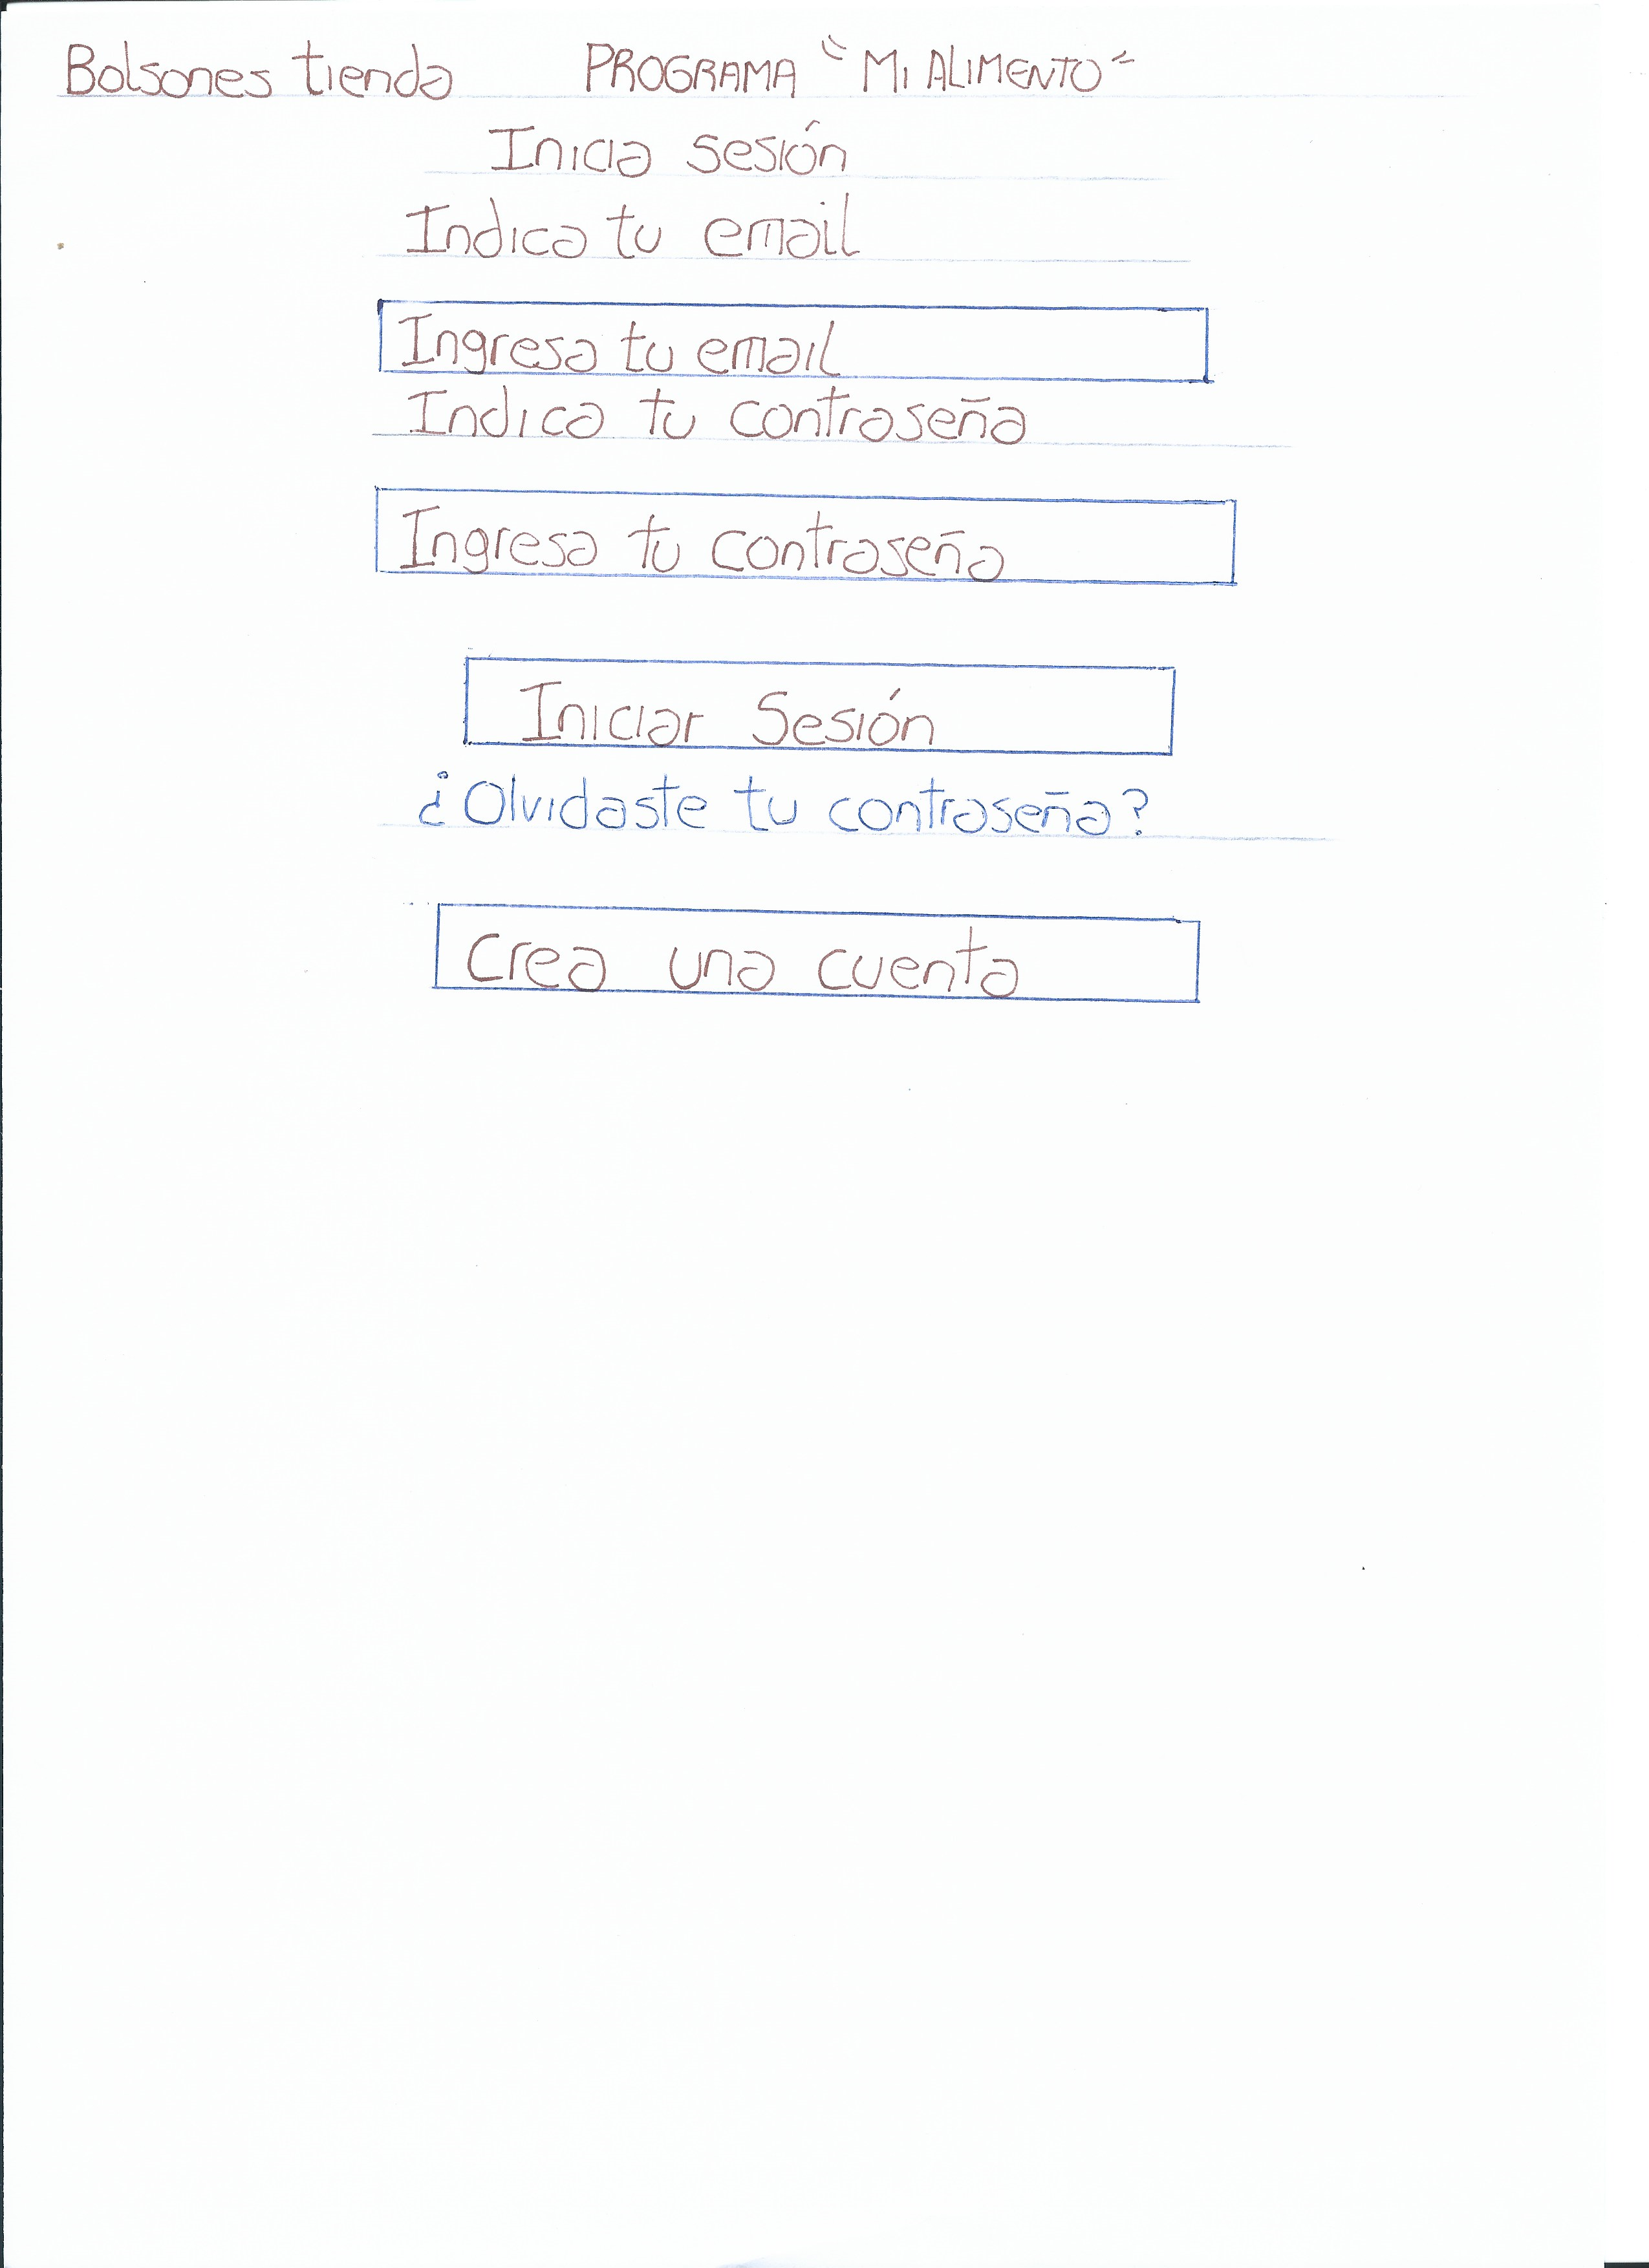 Bolsones tienda PROGRAMA "MI ALIMENTO"
Inicia sesión
Indica tu email
Ingresa tu email
Indica tu contraseña
Ingresa tu contraseña
Iniciar Sesión
¿Olvidaste tu contraseña?
Crea una cuenta